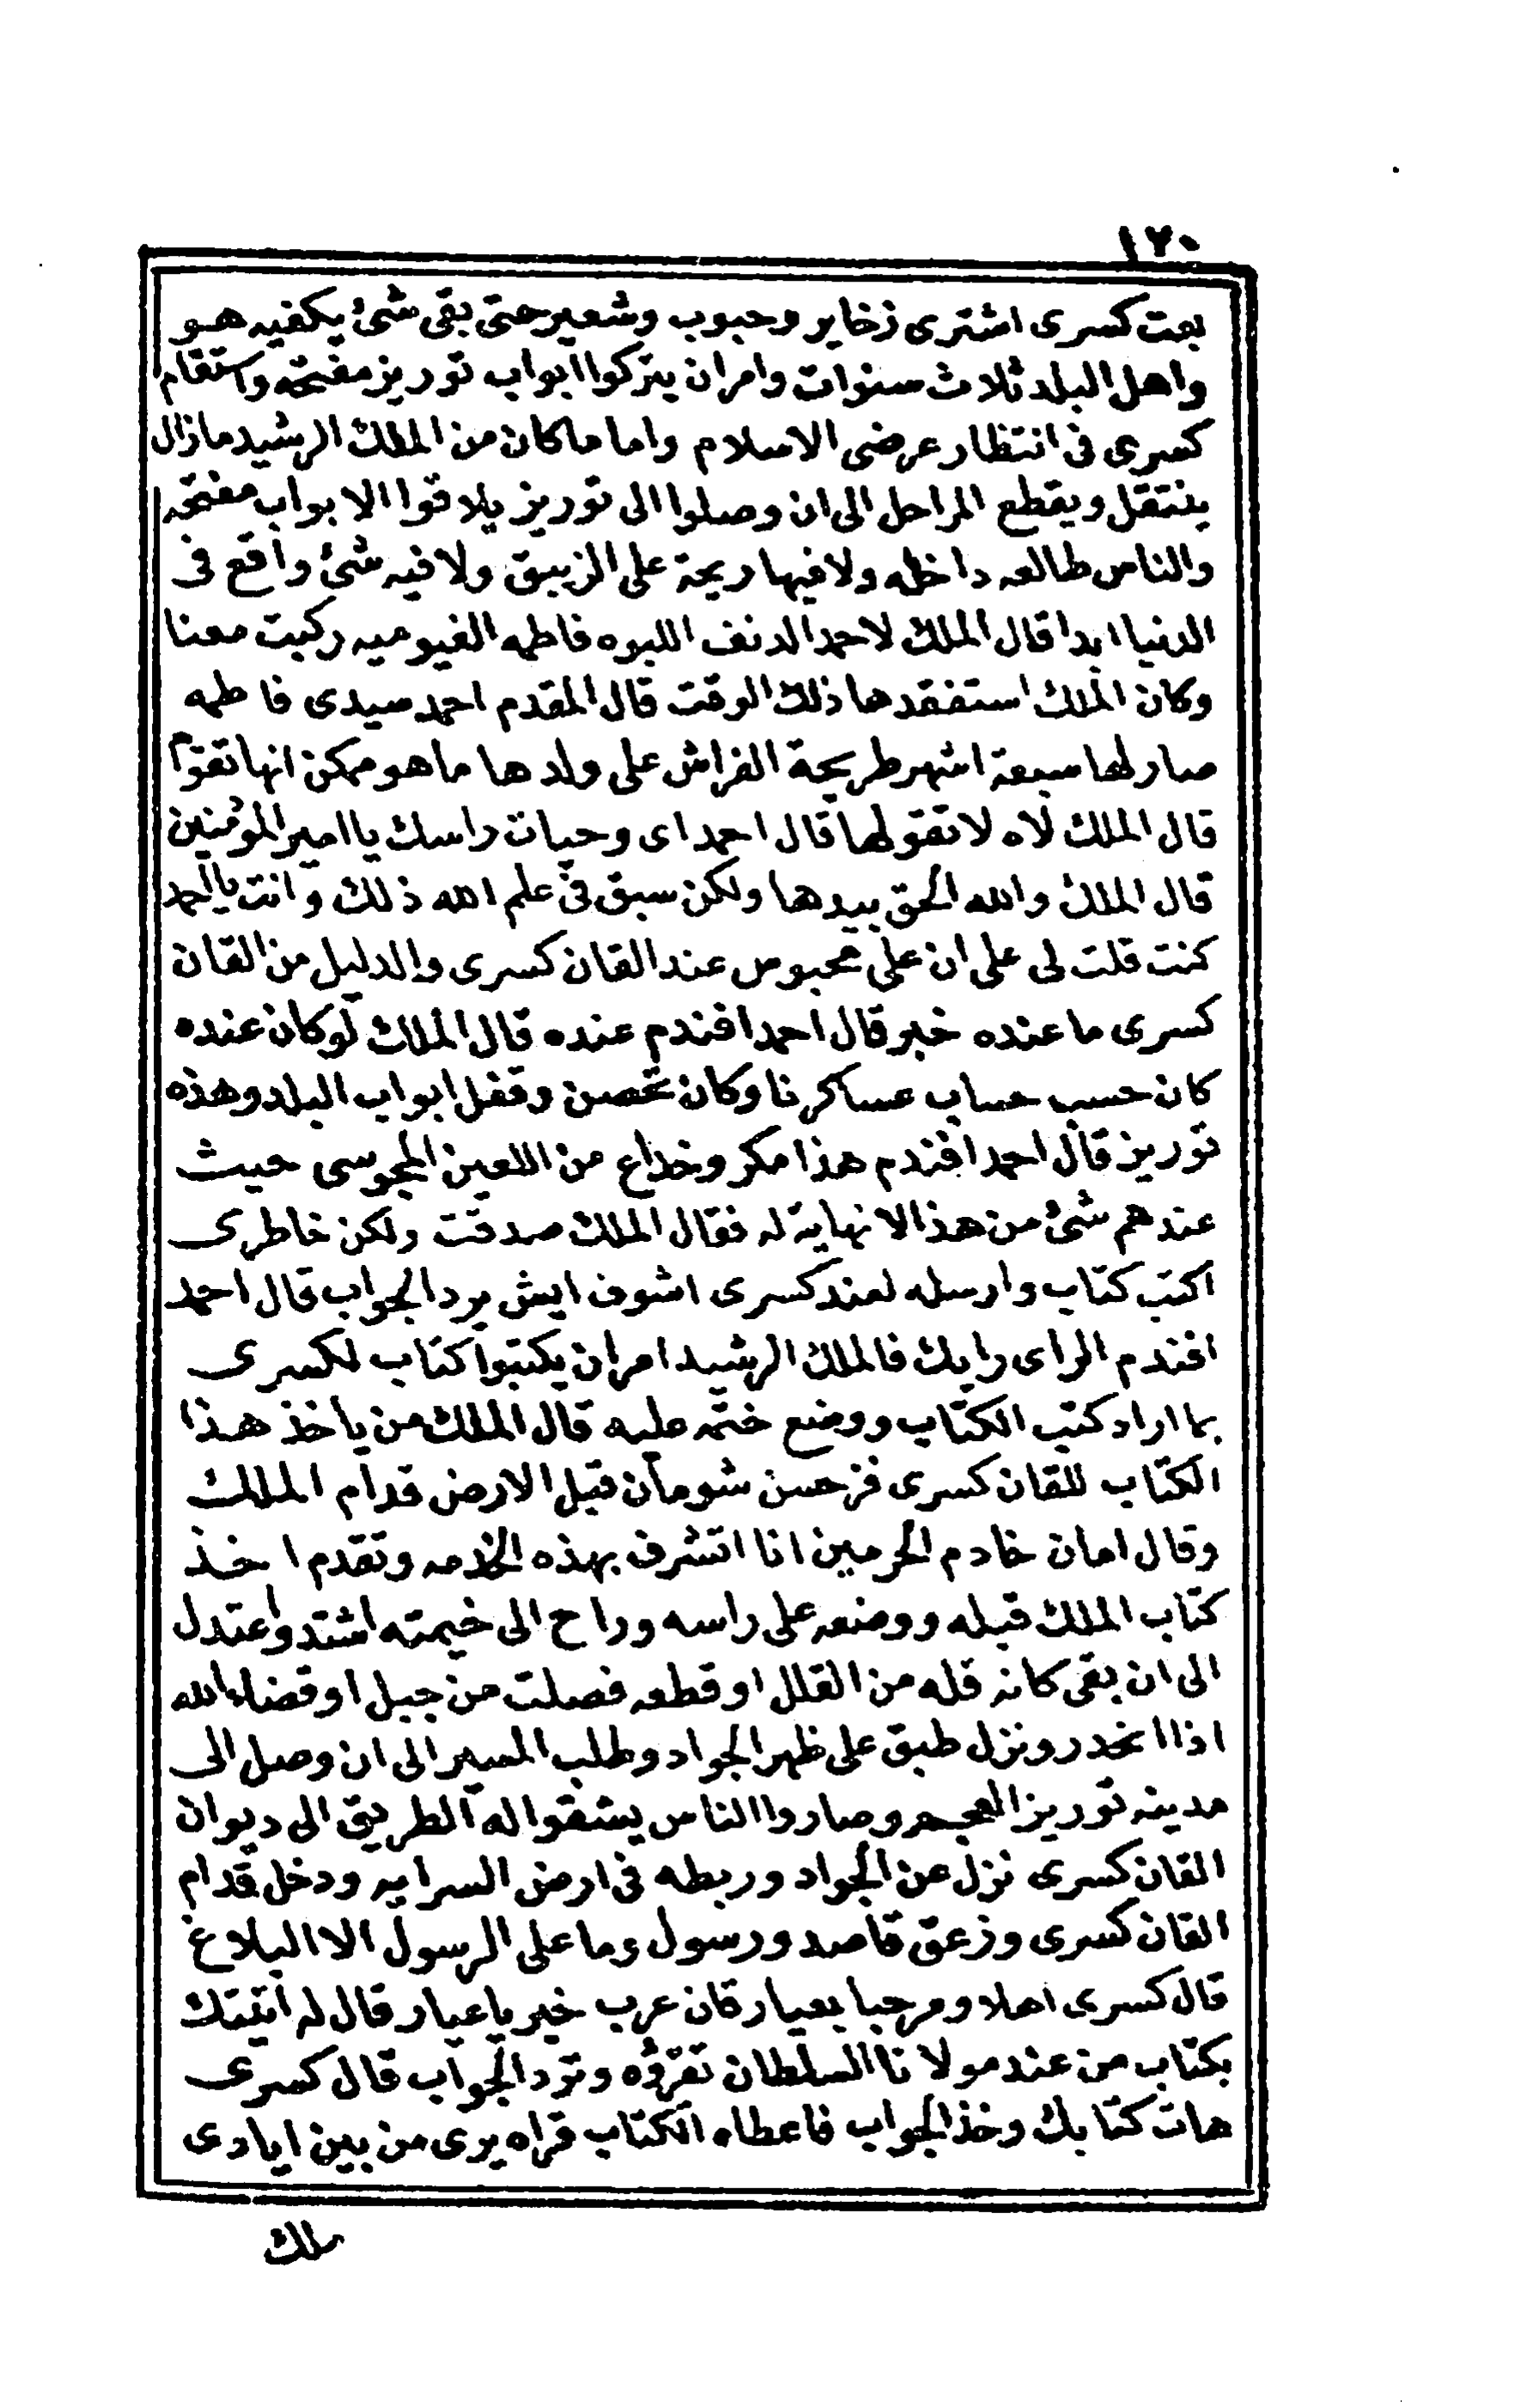 ١٢٠
بعت كسرى اشترى ذخاير وحبوب وشعير حتى بقى شئ يكفيه هو
واهل البلد ثلاث سنوات وامر ان يتركوا ابواب توريز مفتحه واستقام
كسرى فى انتظار عرضى الاسلام واما ماكان من الملك الرشيد مازال
ينتقل ويقطع المراحل الى ان وصلوا الى توريز يلاقوا الابواب مفتحه
والناس طالعه داخله ولافيها ريحة على الزيبق ولا فيه شئ واقع فى
الدنيا ابدا قال الملك لاحمد الدنف اللبوه فاطمه الفيوميه ركبت معنا
وكان الملك استفقدها ذلك الوقت قال المقدم احمد سيدى فاطمه
صار لها سبعة اشهر طريحة الفراش على ولدها ماهو ممكن انها تقوم
قال الملك لاه لا تقولها قال احمد اى وحيات راسك يا امير المؤمنين
قال الملك والله الحق بيدها ولكن سبق فى علم الله ذلك وانت يا احمد
كنت قلت لى على ان على محبوس عند القان كسرى والدليل من القان
كسرى ما عنده خبر قال احمد افندم عنده قال الملك لو كان عنده
كان حسب حساب عساكرنا وكان تحصن وقفل ابواب البلد وهذه
توريز قال احمد افندم هذا مكر وخداع من اللعين المجوسى حيث
عندهم شئ من هذا لا نهاية له فقال الملك صدقت ولكن خاطرى
اكتب كتاب وارسله لعند كسرى اشوف ايش يرد الجواب قال احمد
افندم الراى رايك فالملك الرشيد امر ان يكتبوا كتاب لكسرى
بما اراد كتب الكتاب ووضع ختمه عليه قال الملك من ياخذ هذا
الكتاب للقان كسرى فز حسن شومان قبل الارض قدام الملك
وقال امان خادم الحرمين انا اتشرف بهذه الخدمه وتقدم اخذ
كتاب الملك قبله ووضعه على راسه وراح الى خيمته اشتد واعتدل
الى ان بقى كانه قله من القلل او قطعه فصلت من جبل او قضاء الله
اذا انحدر ونزل طبق على ظهر الجواد وطلب المسير الى ان وصل الى
مدينه توريز العجم وصاروا الناس يشقوا له الطريق الى ديوان
القان كسرى نزل عن الجواد وربطه فى ارض السرايه ودخل قدام
القان كسرى وزعق قاصد ورسول وما على الرسول الا البلاغ
قال كسرى اهلا ومرحبا بعيار قان عرب خير يا عيار قال له اتيتك
بكتاب من عند مولانا السلطان تقرؤه وترد الجواب قال كسرى
هات كتابك وخذ الجواب فاعطاه الكتاب قراه يرى من بين ايادى
ملك